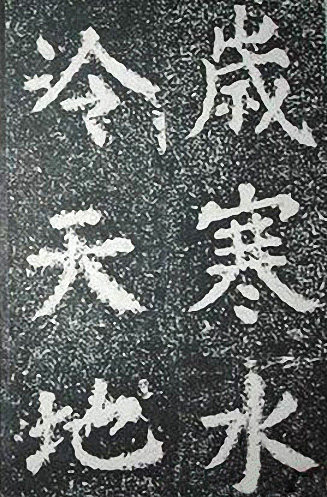 歲寒水
冷天地